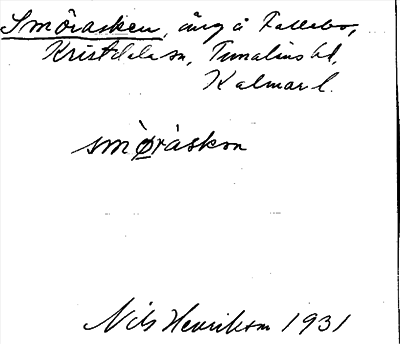 Smörasken, äng å Fallebo,
Kristdala sn, Tunaläns hd,
Kalmar l.
smö̀ráskon
Nils Henrikson 1931